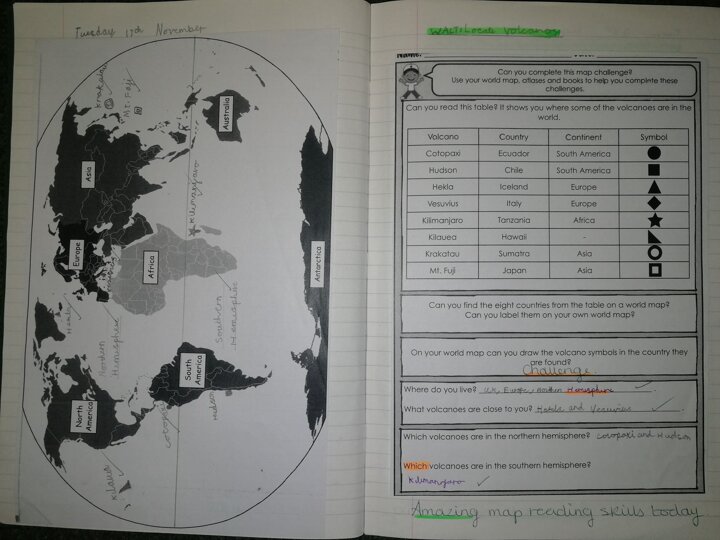 Tuesday 17th November
Krakatau
Mt. Fuji
Australia
Asia
Kilimanjaro
Europe
Africa
Antarctica
Hekla
Northern
Hemisphere
Southern
Hemisphere
South
America
North
America
Cotopaxi
Hudson
Kilauea
WALT: Locate Volcanoes
Name:
Can you complete this map challenge?
Use your world map, atlases and books to help you complete these
challenges.
Can you read this table? It shows you where some of the volcanoes are in the
world.
Volcano Country Continent Symbol
Cotopaxi Ecuador South America
Hudson Chile South America
Hekla Iceland Europe
Vesuvius Italy Europe
Kilimanjaro Tanzania Africa
Kilauea Hawaii - -
Krakatau Sumatra Asia
Mt. Fuji Japan Asia
Can you find the eight countries from the table on a world map?
Can you label them on your own world map?
On your world map can you draw the volcano symbols in the country they
are found?
Challenge
Where do you live? UK, Europe, Northern Hemisphere
What volcanoes are close to you? Hekla and Vesuvius
Which volcanoes are in the northern hemisphere? Cotopaxi and Hudson
Which volcanoes are in the southern hemisphere?
Kilimanjaro
Amazing map reading skills today